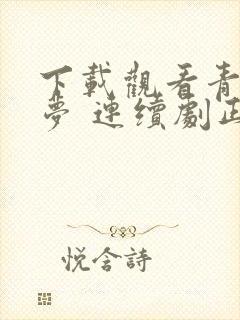 下載觀看青
夢 連續劇正
悅含詩